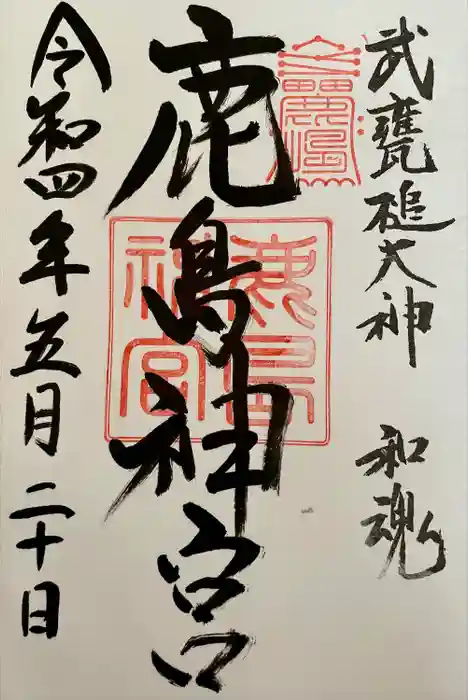 武甕槌大神 和魂
鹿島神宮
鹿島神宮
令和四年五月二十日